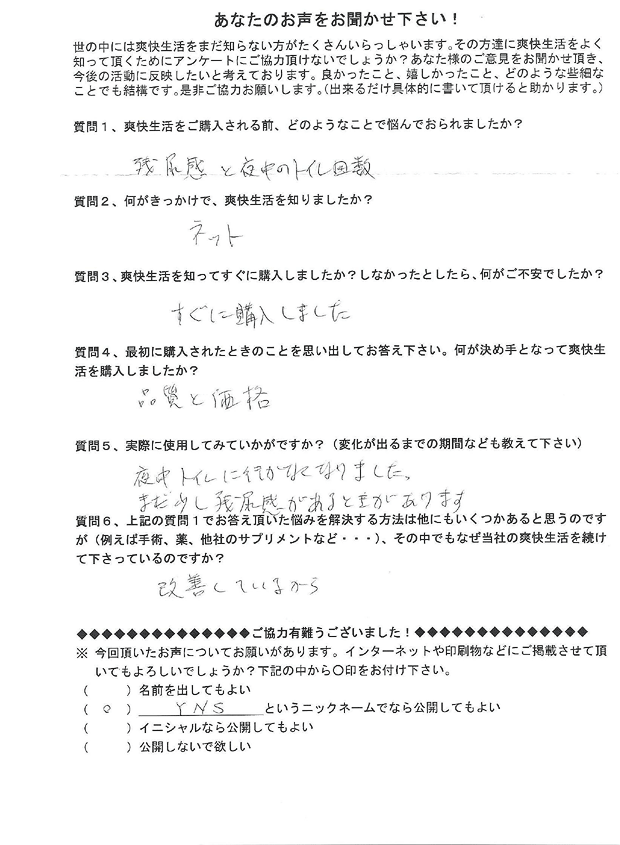 あなたのお声をお聞かせ下さい！
世の中には爽快生活をまだ知らない方がたくさんいらっしゃいます。その方達に爽快生活をよく
知って頂くためにアンケートにご協力頂けないでしょうか？あなた様のご意見をお聞かせ頂き、
今後の活動に反映したいと考えております。良かったこと、嬉しかったこと、どのような些細な
ことでも結構です。是非ご協力お願いします。（出来るだけ具体的に書いて頂けると助かります。）
質問１、爽快生活をご購入される前、どのようなことで悩んでおられましたか？
残尿感と夜中のトイレ回数
質問２、何がきっかけで、爽快生活を知りましたか？
ネット
質問３、爽快生活を知ってすぐに購入しましたか？しなかったとしたら、何がご不安でしたか？
すぐに購入しました
質問４、最初に購入されたときのことを思い出してお答え下さい。何が決め手となって爽快生
活を購入しましたか？
品質と価格
質問５、実際に使用してみていかがですか？（変化が出るまでの期間なども教えて下さい）
夜中トイレに行かなくなりました。
まだ少し残尿感があるときがあります
質問６、上記の質問１でお答え頂いた悩みを解決する方法は他にもいくつかあると思うのです
が（例えば手術、薬、他社のサプリメントなど・・・）、その中でもなぜ当社の爽快生活を続け
て下さっているのですか？
改善しているから
◆◆◆◆◆◆◆◆◆◆◆◆◆◆ご協力有難うございました！◆◆◆◆◆◆◆◆◆◆◆◆◆◆
※ 今回頂いたお声についてお願いがあります。インターネットや印刷物などにご掲載させて頂
いてもよろしいでしょうか？下記の中から〇印をお付け下さい。
（　　）名前を出してもよい
（ ○ ）YNSというニックネームでなら公開してもよい
（　　）イニシャルなら公開してもよい
（　　）公開しないで欲しい